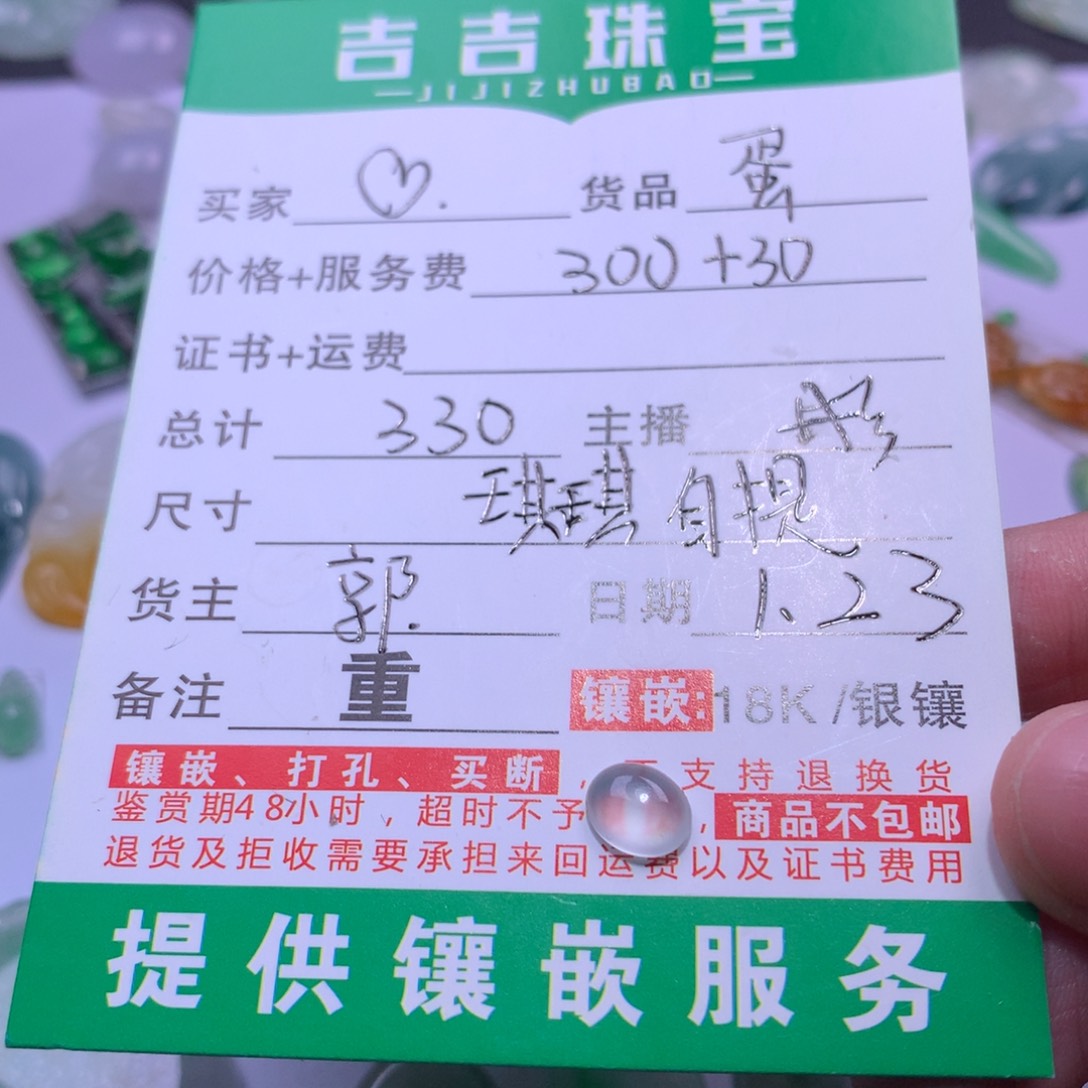 吉吉珠宝
JIJIZHUBAO
买家 ♡. 货品 蛋
价格+服务费 300+30
证书+运费
总计 330 主播
尺寸 琪琪自提
货主 郭. 日期 1.23
备注 重 镶嵌:18K/银镶
镶嵌、打孔、买断,不支持退换货
鉴赏期48小时,超时不予,商品不包邮
退货及拒收需要承担来回运费以及证书费用
提供镶嵌服务